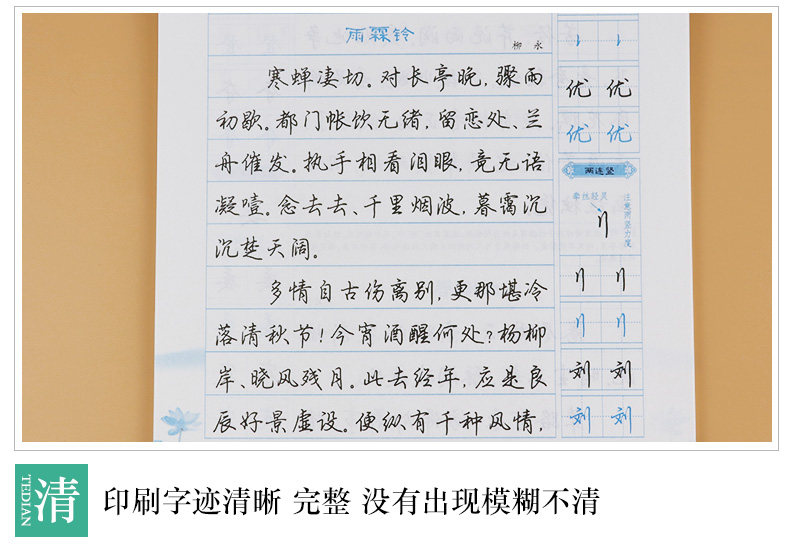 雨霖铃
柳永
寒蝉凄切。对长亭晚，骤雨
初歇。都门帐饮无绪，留恋处、兰
舟催发。执手相看泪眼，竟无语
凝噎。念去去、千里烟波，暮霭沉
沉楚天阔。
多情自古伤离别，更那堪冷
落清秋节！今宵酒醒何处？杨柳
岸、晓风残月。此去经年，应是良
辰好景虚设。便纵有千种风情，
优 优
优 优
两连竖
牵丝轻灵
注意两竖力度
刘 刘
刘 刘
清
TEDIAN
印刷字迹清晰 完整 没有出现模糊不清